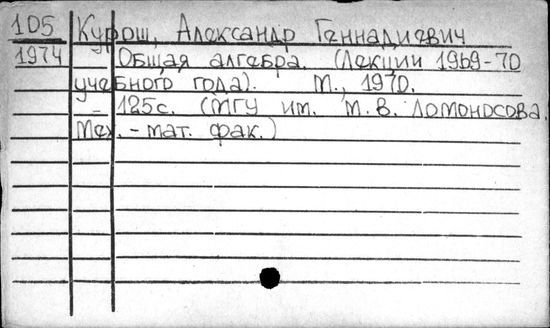 105 Курош, Александр Геннадиевич
1974 Общая алгебра. (Лекции 1969-70
учебного года). М., 1970.
- 125с. (МГУ им. М.В. Ломоносова.
Мех.-мат. фак.)